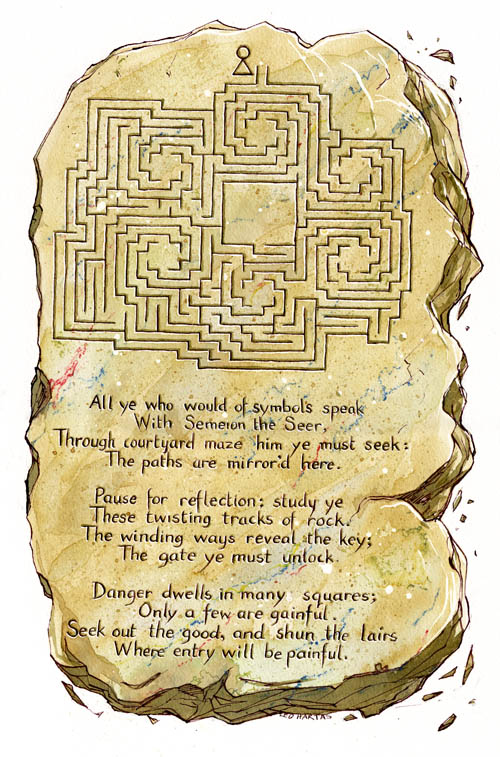 All ye who would of symbols speak
With Semeion the Seer,
Through courtyard maze him ye must seek:
The paths are mirror'd here.
Pause for reflection; study ye
These twisting tracks of rock.
The winding ways reveal the key;
The gate ye must unlock.
Danger dwells in many squares;
Only a few are gainful.
Seek out the good, and shun the lairs
Where entry will be painful.
LEO HARTAS